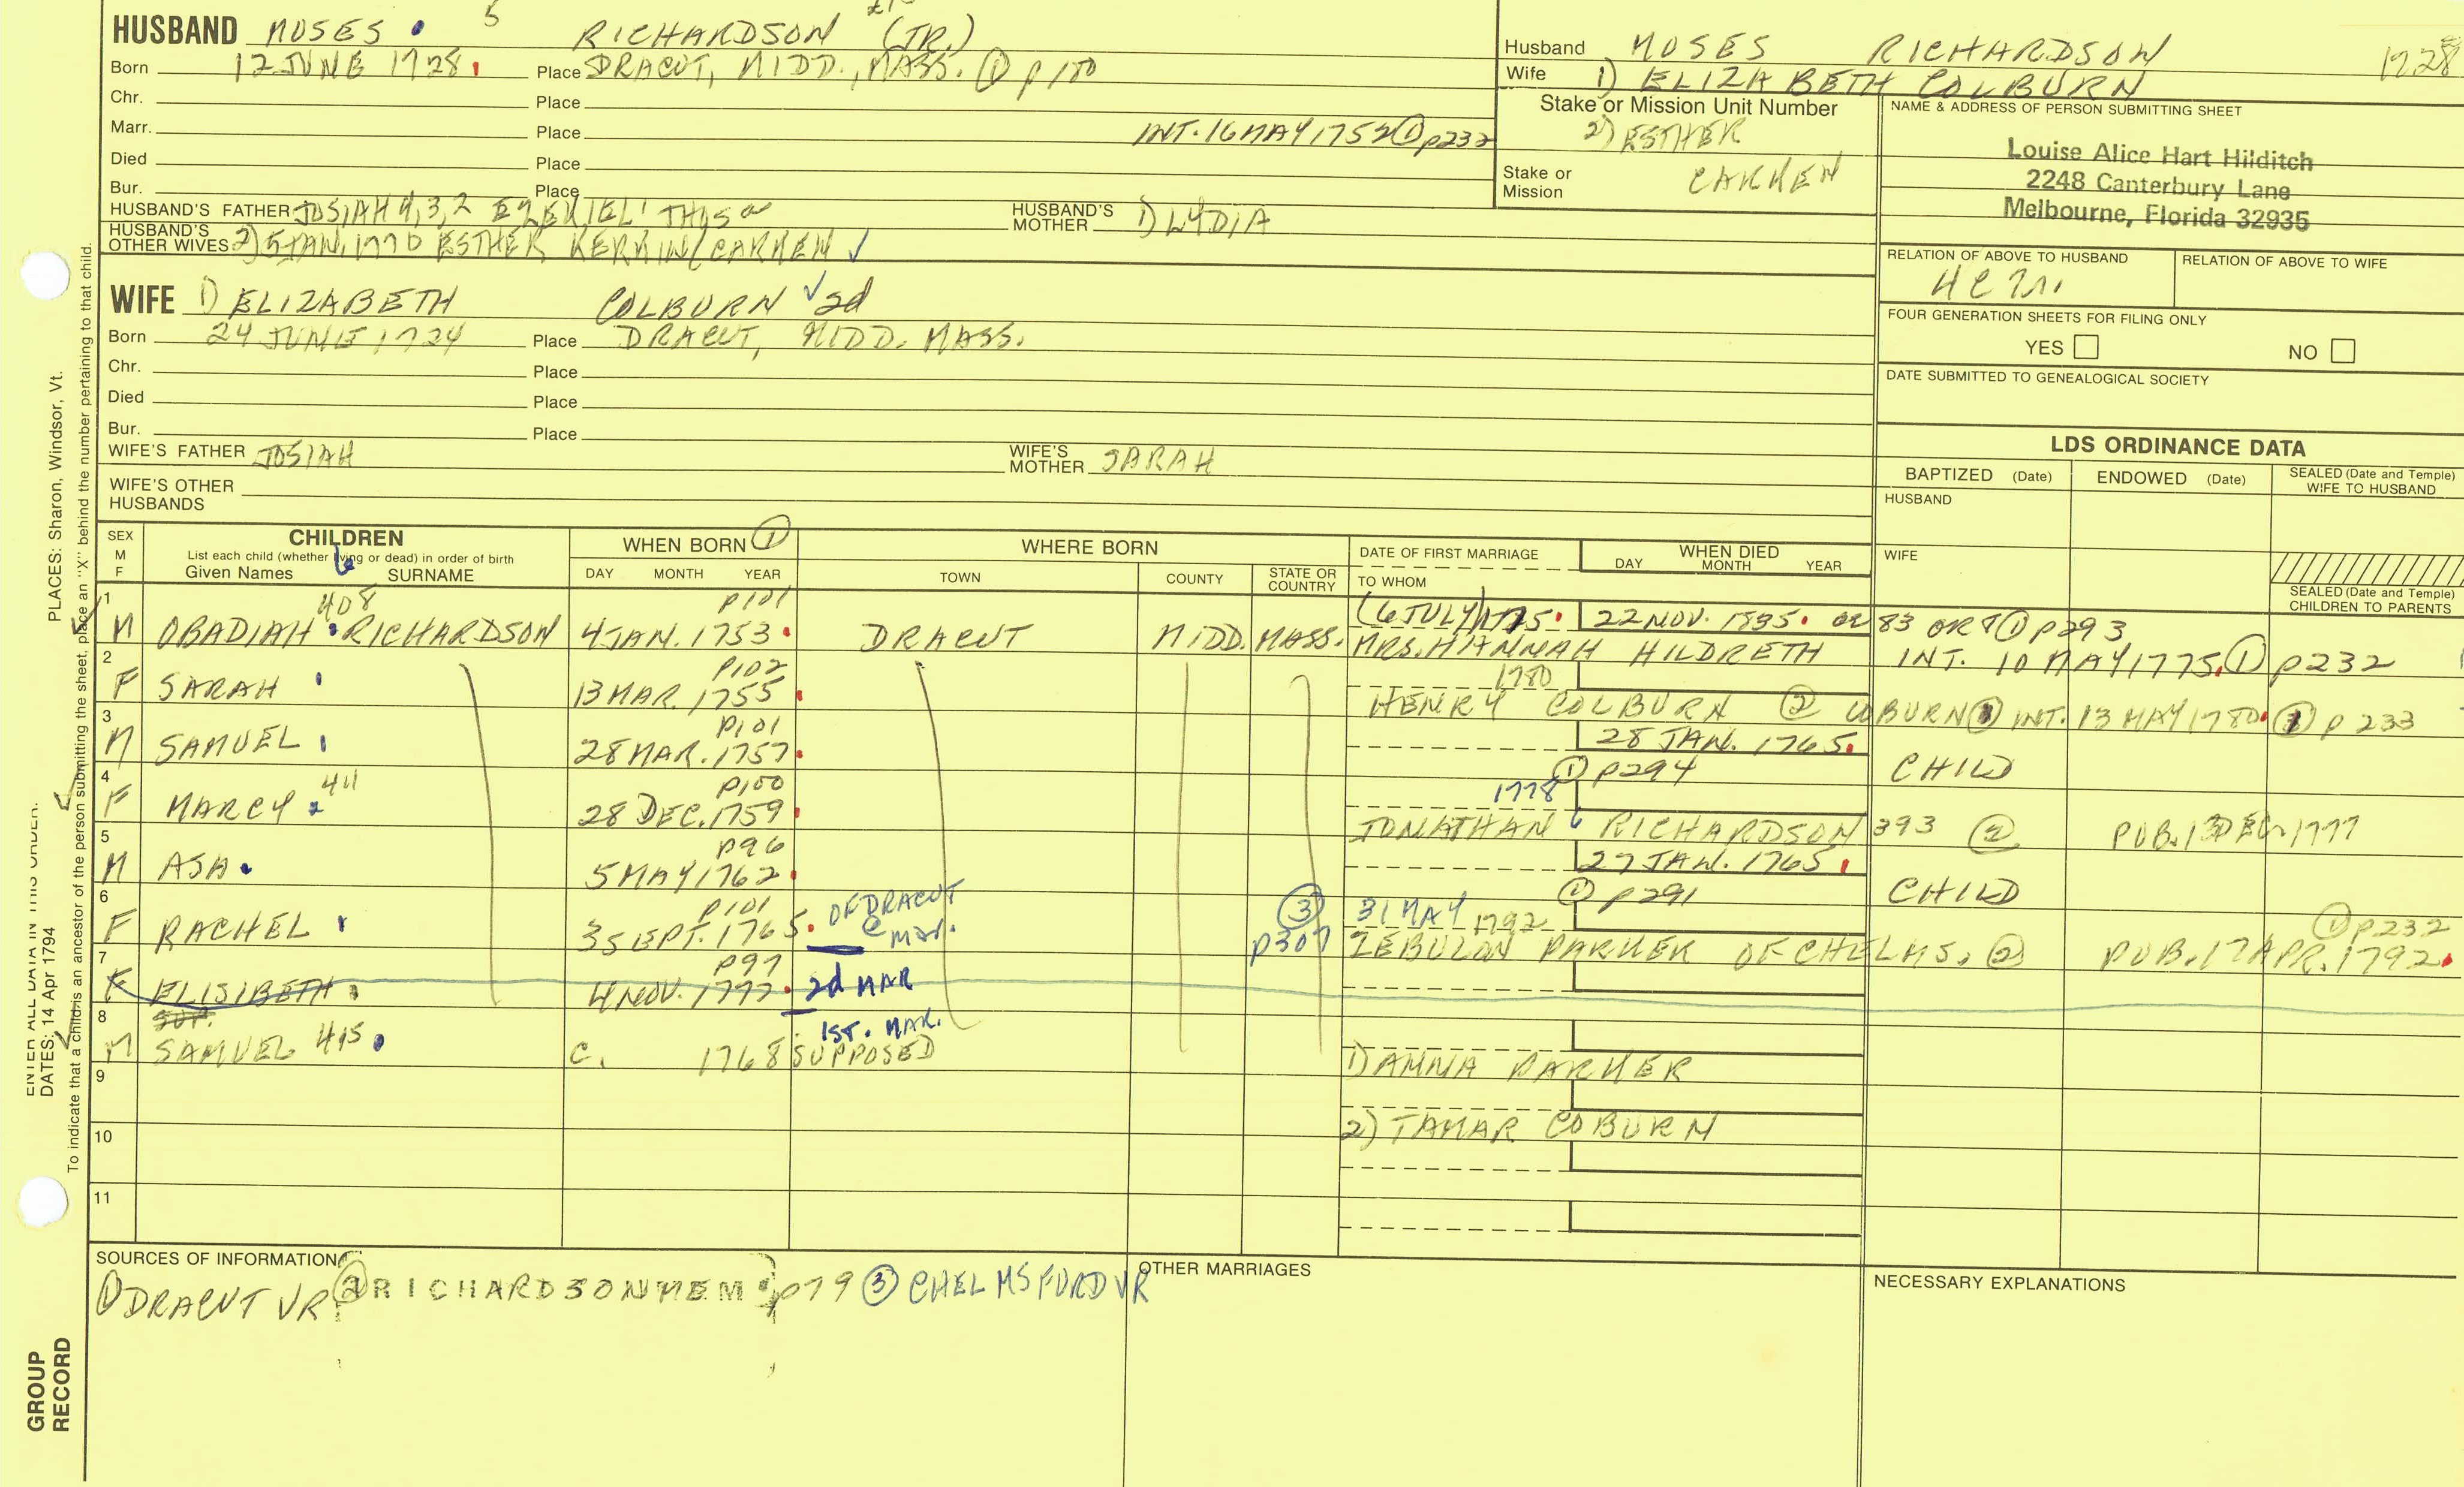 HUSBAND MOSES 5 RICHARDSON (JR.)
Born 12 JUNE 1728 Place DRACUT, MIDD., MASS. ① p 100
Chr. Place
Marr. Place INT. 16 MAY 1752 ① p232
Died Place
Bur. Place
HUSBAND'S FATHER JOSIAH 4,3,2 EZEKIEL1 THOS HUSBAND'S MOTHER 1) LYDIA
HUSBAND'S OTHER WIVES 2) 5 JAN. 1770 ESTHER KERRIN/CARKEN ✓
Husband MOSES RICHARDSON 1728
Wife 1) ELIZABETH COLBURN
Stake or Mission Unit Number
2) ESTHER
Stake or Mission CARKEN
NAME & ADDRESS OF PERSON SUBMITTING SHEET
Louise Alice Hart Hilditch
2248 Canterbury Lane
Melbourne, Florida 32935
RELATION OF ABOVE TO HUSBAND RELATION OF ABOVE TO WIFE
FOUR GENERATION SHEETS FOR FILING ONLY
YES NO
DATE SUBMITTED TO GENEALOGICAL SOCIETY
WIFE 1) ELIZABETH COLBURN ✓ 2d
Born 24 JUNE 1724 Place DRACUT, MIDD. MASS.
Chr. Place
Died Place
Bur. Place
WIFE'S FATHER JOSIAH WIFE'S MOTHER SARAH
WIFE'S OTHER HUSBANDS
LDS ORDINANCE DATA
BAPTIZED (Date) ENDOWED (Date) SEALED (Date and Temple) WIFE TO HUSBAND
HUSBAND
WIFE
SEALED (Date and Temple) CHILDREN TO PARENTS
SEX M F
CHILDREN
List each child (whether living or dead) in order of birth
Given Names SURNAME
WHEN BORN ①
DAY MONTH YEAR
WHERE BORN
TOWN COUNTY STATE OR COUNTRY
DATE OF FIRST MARRIAGE
TO WHOM
WHEN DIED
DAY MONTH YEAR
1 408 P101 (6 JULY) 1775. 22 NOV. 1835. OR 83 OR ① p293
M OBADIAH RICHARDSON 4 JAN. 1753 DRACUT MIDD. MASS. MRS. HANNAH HILDRETH INT. 10 MAY 1775. ① p232
2 P102 1780
F SARAH 13 MAR. 1755 HENRY COLBURN ② COBURN ① INT. 13 MAY 1780. ① p 233
3 P101 28 JAN. 1765.
M SAMUEL 28 MAR. 1757 ① P294 CHILD
4 411 P100 1778
F MARCY 28 DEC. 1759 JONATHAN 6 RICHARDSON 393 ② PUB. 13 DEC. 1777
5 P96 27 JAN. 1765.
M ASA 5 MAY 1762 ① p291 CHILD
6 P101 OF DRACUT @ MAR. ③ 31 MAY 1792 ① p232
F RACHEL 3 SEPT. 1765. p307 ZEBULON PARKER OF CHELMS. ② PUB. 17 APR. 1792.
7 P97
F ELISIBETH 4 NOV. 1777. 2d MAR
8 SUP. 1ST. MAR.
M SAMUEL 415 C. 1768 SUPPOSED 1) DANNA PARKER
9
10 2) TAMAR COBURN
11
SOURCES OF INFORMATION
① DRACUT VR ② RICHARDSON MEM. ③ CHELMSFORD VR
OTHER MARRIAGES
NECESSARY EXPLANATIONS
PLACES: Sharon, Windsor, Vt.
ENTER ALL DATA IN THIS ORDER.
DATES: 14 Apr 1794
To indicate that a child is an ancestor of the person submitting the sheet, place an "X" behind the number pertaining to that child.
GROUP
RECORD